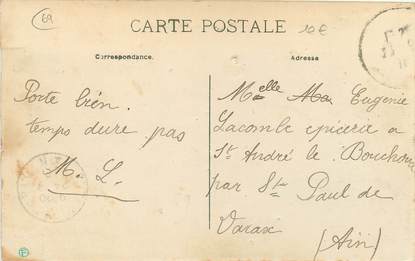 69
CARTE POSTALE
10€
Correspondance.
Adresse
Porte bien.
temps dure pas
M. L.
Melle Ma Eugenie
Lacombe epicerie a
St André le Bouchoux
par St Paul de
Varax
(Ain)